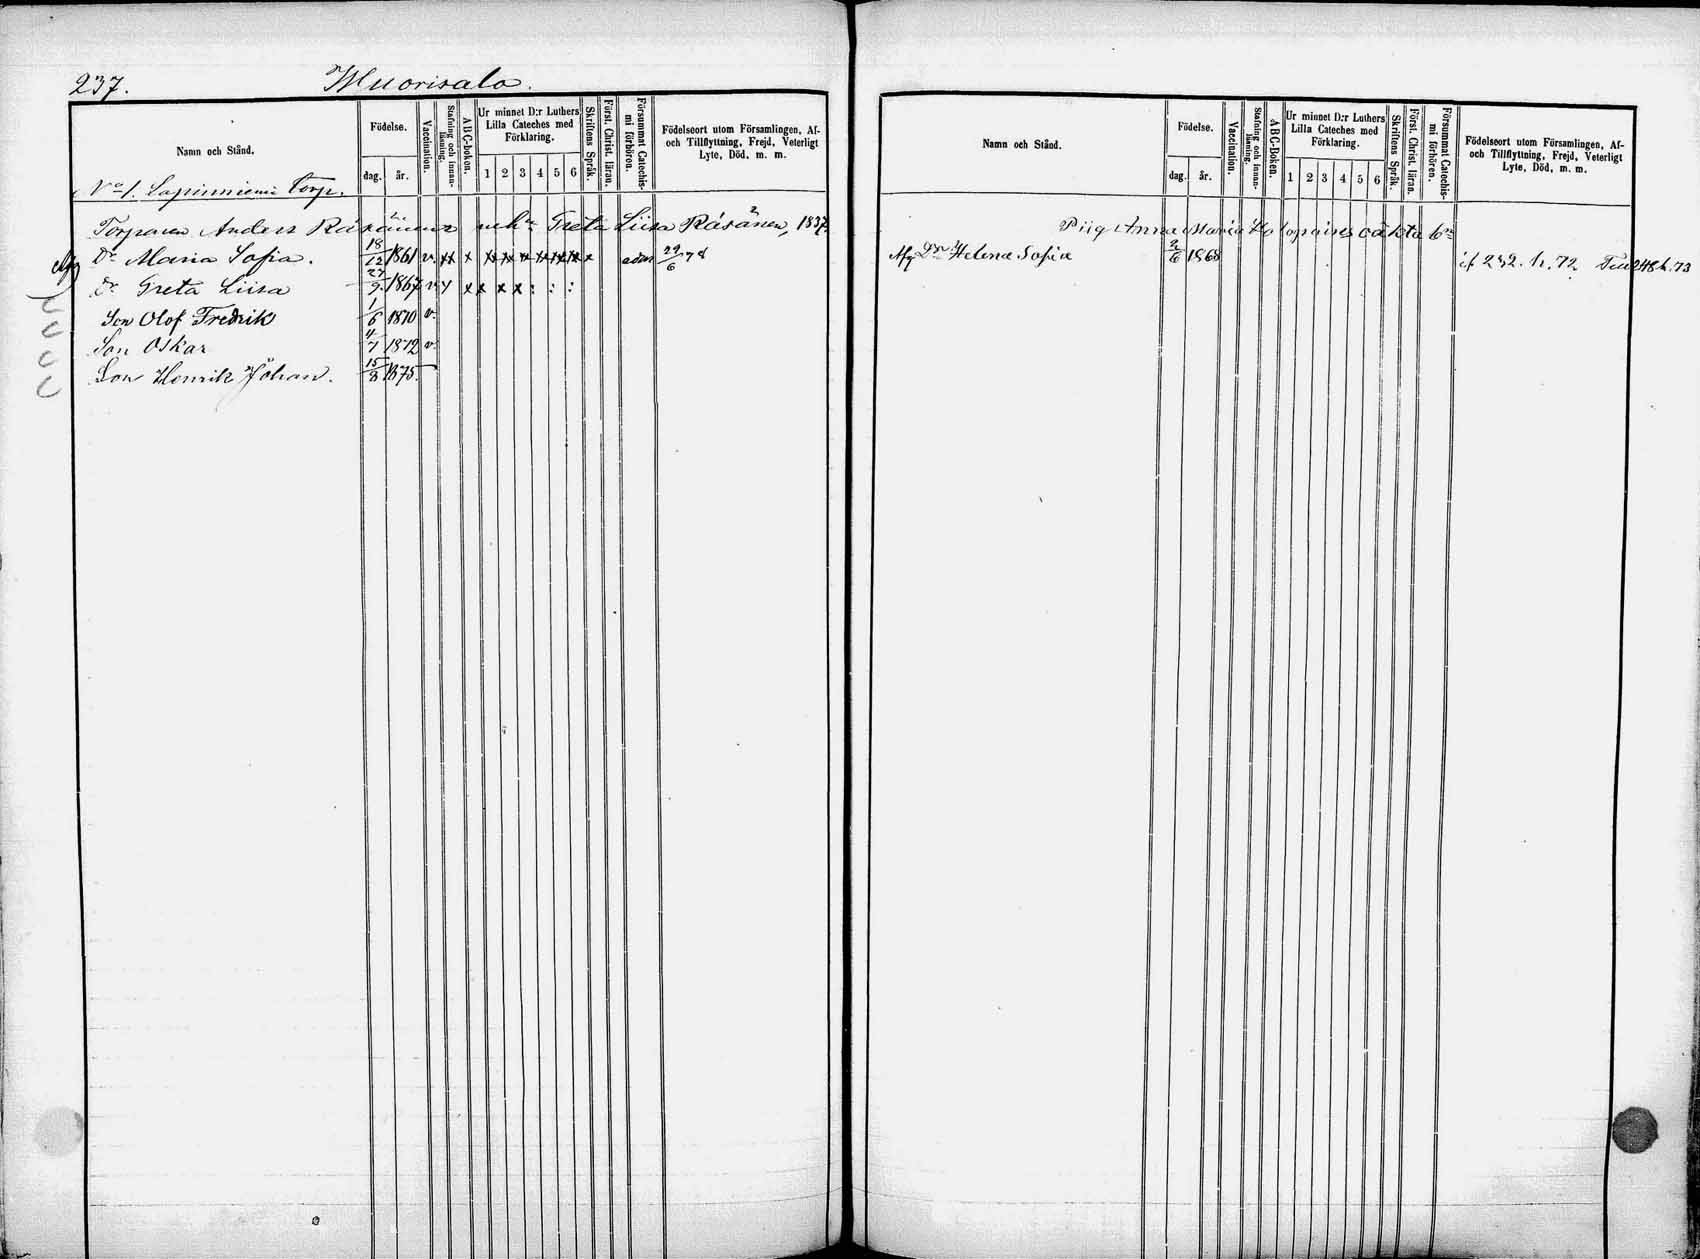 237. Muorisalo.
Namn och Stånd.
Födelse.
dag. år.
Vaccination.
Stafning och innanläsning.
ABC-boken.
Ur minnet D:r Luthers Lilla Cateches med Förklaring.
1 2 3 4 5 6
Skriftens Språk.
Först. Christ. läran.
Försummat Catechismi förhören.
Födelseort utom Församlingen, Af- och Tillflyttning, Frejd, Veterligt Lyte, Död, m. m.
No 1. Lapinniemi Torp.
Torparen Anders Räsänens och Greta Liisa Räsänen, 1837.
Dr Maria Sofia. 18/12 1861 v. xx x xx xx xx xx xx xx x adm 29/6 78
Dr Greta Liisa 27/9 1867 v. x x x x : : :
Son Olof Fredrik 1/6 1870 v.
Son Oskar 4/7 1872 v.
Son Henrik Johan. 15/8 1875.
Namn och Stånd.
Födelse.
dag. år.
Vaccination.
Stafning och innanläsning.
ABC-Boken.
Ur minnet D:r Luthers Lilla Cateches med Förklaring.
1 2 3 4 5 6
Skriftens Språk.
Först. Christ. läran.
Försummat Catechismi förhören.
Födelseort utom Församlingen, Af- och Tillflyttning, Frejd, Veterligt Lyte, Död, m. m.
Piig Anna Maria Holopaises oäkta bn
Afg Dr Helena Sofia 2/6 1868 if 232. h. 72. Till 248 h. 73